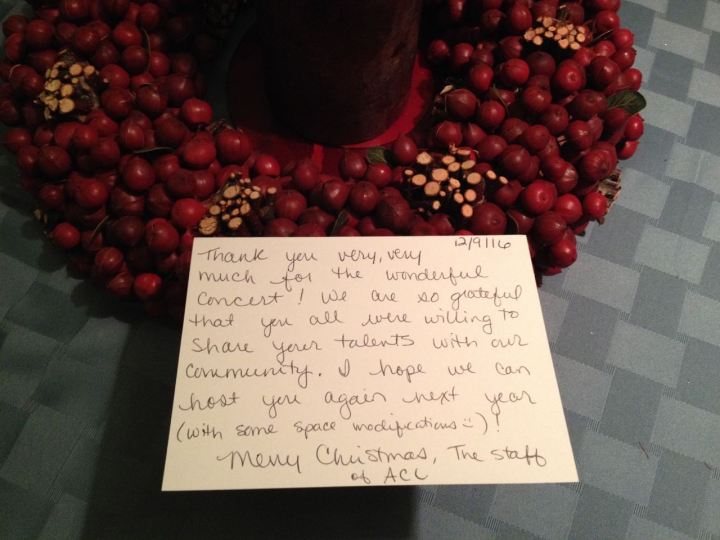 12/9/16
Thank you very, very
much for the wonderful
concert! We are so grateful
that you all were willing to
share your talents with our
community. I hope we can
host you again next year
(with some space modifications :))!
Merry Christmas, The staff
of ACC